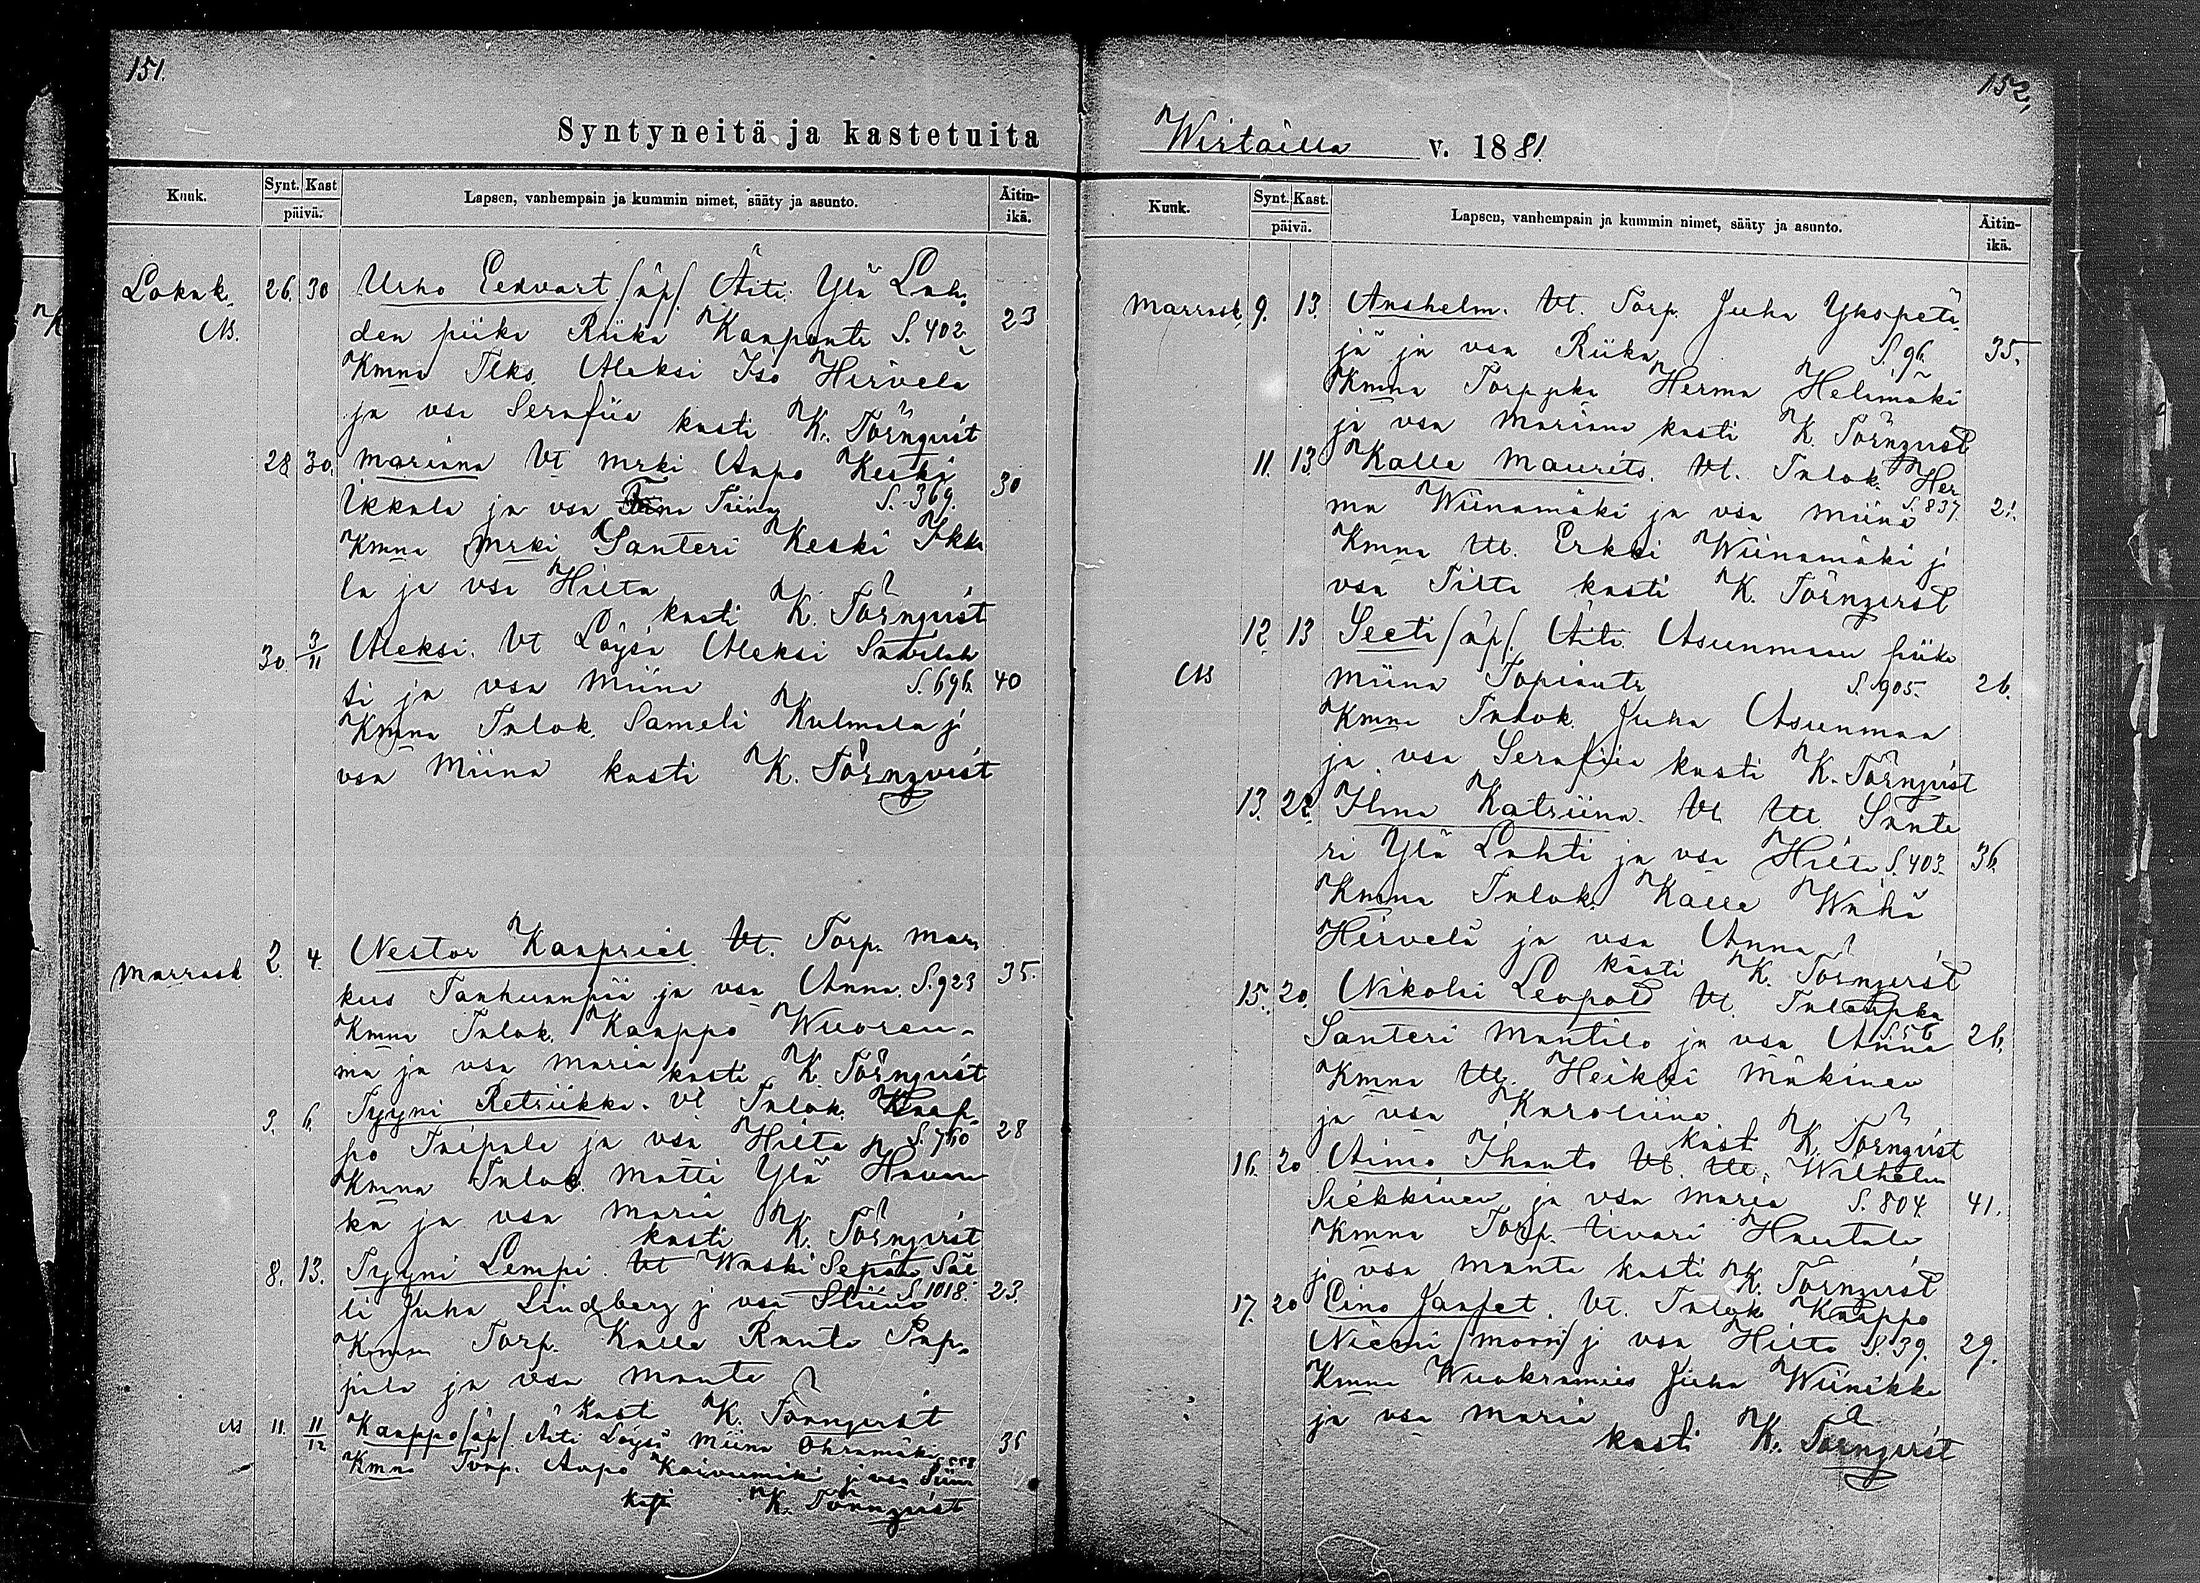 151.
Syntyneitä ja kastetuita
Kuuk. Synt. Kast päivä. Lapsen, vanhempain ja kummin nimet, sääty ja asunto. Äitin-ikä.
Lokak. 26. 30 Urho Eedvart /äp/. Äiti Ylä Lah-
den piika Riika Kaapunti S. 402. 23
Kmna Tlks. Aleksi Iso Hirvelä
ja vsa Serafiia kasti K. Törnqvist
28 30. Marianna Vt Mrki Aapo Keski
Ikkala ja vsa Tiina S. 369. 30
Kmna Mrki Santeri Keski Ikka
la ja vsa Hilta
kasti K. Törnqvist
30 3/11 Aleksi. Vt Löysä Aleksi
ti ja vsa Miina S. 696. 40
Kmna Inlok. Sameli Kulmala j
vsa Miina kasti K. Törnqvist
Marrask. 2. 4. Nestor Kaapriel. Vt. Torp. Mar-
kus Tanhuanpää ja vsa Anna. S. 923 35.
Kmna Inlok. Kaappo Wuoren-
ma ja vsa Maria kasti K. Törnqvist
3. 6. Tyyni Retriikka. Vt Inlok. Kaap-
po Taipale ja vsa Hilta S. 760 28
Kmna Inlok. Matti Ylä Havan
ka ja vsa Maria
kasti K. Törnqvist
8. 13. Tyyni Lempi. Vt Waski Sepän Säl
li Juha Lindberg j vsa Stiina S. 1018. 23.
Kmna Torp. Kalle Ranta Pap-
pila ja vsa Manta
kasti K. Törnqvist
11. 11/12 Kaappo /äp/. Äiti Löysä Miina Ohramäki 35
Kmna Torp. Aapo Koivumäki j vsa Tiina
kasti K. Törnqvist
152.
Wirtailla v. 1881.
Kuuk. Synt. Kast. päivä. Lapsen, vanhempain ja kummin nimet, sääty ja asunto. Äitin-ikä.
Marrask. 9. 13. Anshelm. Vt. Torp. Juha Ykspetä
jä ja vsa Riika S. 96. 35.
Kmna Torppka Herma Helimäki
ja vsa Mariana kasti K. Törnqvist
11. 13. Kalle Maurits. Vt. Inlok. Her
ma Wiinamäki ja vsa Miina S. 837. 21.
Kmna Itl. Erkki Wiinamäki j
vsa Tilta kasti K. Törnqvist
12. 13 Seeti /äp/. Äiti Asunmaan piika
Miina Topiantr S. 905. 26.
Kmna Inlok. Juha Asunmaa
ja vsa Serafiia kasti K. Törnqvist
13. 22. Ilma Katriina. Vt. Itl Sante
ri Ylä Lahti ja vsa Hilta S. 403. 36
Kmna Inlok. Kalle Wähä
Hirvelä ja vsa Anna
kasti K. Törnqvist
15. 20. Nikolai Leopold Vt. Inlospka
Santeri Mantila ja vsa Anna S. 56 26.
Kmna Itl. Heikki Mäkinen
ja vsa Karoliina
kast K. Törnqvist
16. 20 Aimo Ihanto Vt. Itl. Wilhelm
Siekkinen ja vsa Maria S. 804. 41.
Kmna Torp. Iivari Hautala
j vsa Manta kasti K. Törnqvist
17. 20 Eino Jaafet. Vt. Inlok Kaappo
Niemi /Morri/ j vsa Hilta S. 39. 29.
Kmna Wuokramies Juha Wiinikka
ja vsa Maria
kasti K. Törnqvist